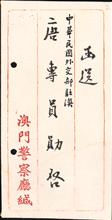 函送
中華民國外交部駐澳
唐專員勛啓
澳門警察廳緘